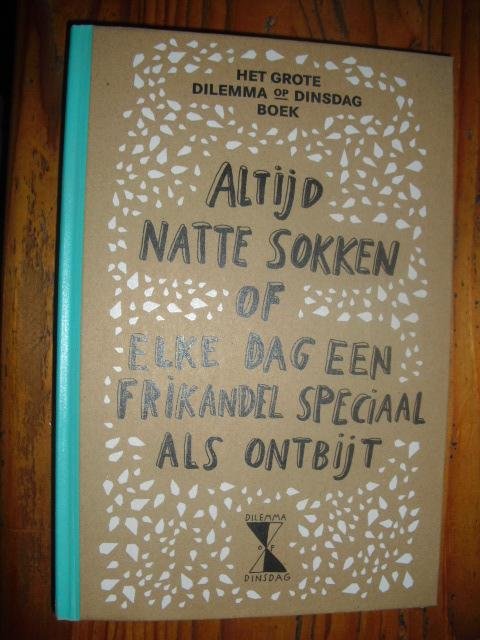 HET GROTE
DILEMMA OP DINSDAG
BOEK
ALTIJD
NATTE SOKKEN
OF
ELKE DAG EEN
FRIKANDEL SPECIAAL
ALS ONTBIJT
DILEMMA
OF
DINSDAG